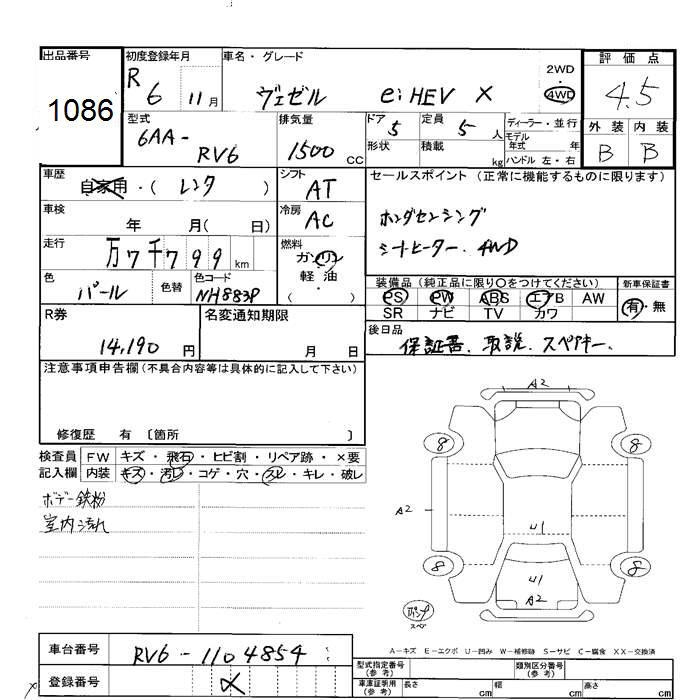 出品番号 初度登録年月 車名・グレード 2WD 評価点
1086 R 6 11月 ヴェゼル e:HEV X 4WD 4.5
型式 排気量 ドア 5 定員 5人 ディーラー・並行 外装 内装
6AA-RV6 1500cc 形状 積載 kg モデル年式 年 B B
ハンドル 左・右
車歴 自家用・(レンタ) シフト AT セールスポイント (正常に機能するものに限ります)
車検 年 月( 日) 冷房 AC ホンダセンシング
シートヒーター、4WD
走行 万7千799km 燃料 ガソリン
軽油
( )
色 パール 色替 色コード NH883P
装備品(純正品に限り○をつけてください) 新車保証書
PS PW ABS エアB AW 有・無
SR ナビ TV カワ
R券 14,190円 名変通知期限 月 日
後日品
保証書、取説、スペアキー、
注意事項申告欄(不具合内容等は具体的に記入して下さい)
修復歴 有 〔箇所 〕
検査員 FW キズ・飛石・ヒビ割・リペア跡・×要
記入欄 内装 キズ・汚レ・コゲ・穴・スレ・キレ・破レ
ボデー鉄粉
室内汚れ
A2
8 8
A2 U1
8 U1 8
A2
スペ
A-キズ E-エクボ U-凹み W-補修跡 S-サビ C-腐食 XX-交換済
車台番号 RV6-1104854
型式指定番号(参考) 類別区分番号(参考)
登録番号
車庫証明用(参考) 長さ cm 幅 cm 高さ cm